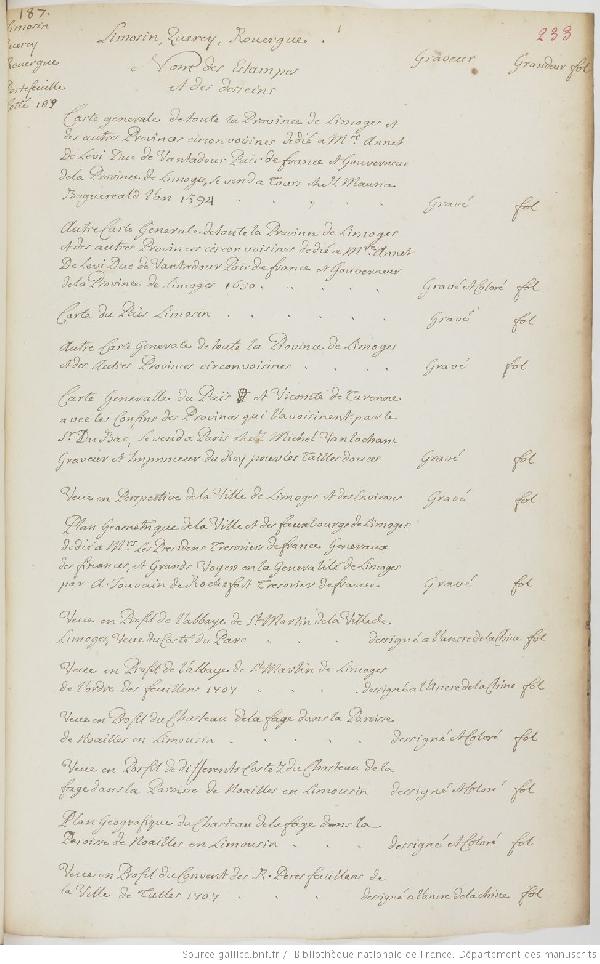 187.
Limosin
Quercy
Rouergue
Portefeuille
Cotté 189
233
Limosin, Quercy, Rouergue.
Nom des Estampes
et des desseins
Graveur Grandeur fol
Carte generale de toute la Province de Limoges et
des autres Provinces circonvoisines dedié a Mre Annet
De Levi Duc de Vantadour Pair de france et Gouverneur
de la Province de Limoges, se vend a Tours
Boguereald l'an 1594 Gravé fol
Autre Carte Generale de toute la Province de Limoges
et des autres Provinces circonvoisines dedié a Mre Annet
De Levi Duc de Vantadour Pair de france et Gouverneur
de la Province de Limoges 1650. Gravé et Coloré fol
Carte du Païs Limosin Gravé fol
Autre Carte Generale de toute la Province de Limoges
et des Autres Provinces circonvoisines Gravé fol
Carte Generalle du Païs et Vicomté de Turenne
avec les Confins des Provinces qui l'avoisinent par le
Sr. Du Bac, se vend a Paris chez Michel Vanlocham
Graveur et Imprimeur du Roy pour les Tailles douces Gravé fol
Veue en Perspective de la Ville de Limoges et des Environs Gravé fol
Plan Geametrique de la Ville et des fauxbourgs de Limoges
dedié a Mrs. Les Presidens Tresoriers de france Generaux
des finances, et Grands Voyers en la Generalité de Limoges
par A. Jouvain de Rochefort Tresorier de france Gravé fol
Veue en Profil de l'abbaye de St Martin de la Ville de
Limoges, Veue du Costé du Parc dessigné a l'ancre de la Chine fol
Veue en Profil de l'abbaye de St Martin de Limoges
de l'ordre des feuillens 1707 dessigné a l'Ancre de la Chine fol
Veue en Profil du Chasteau de la fage dans la Paroisse
de Noailles en Limousin dessigné et Coloré fol
Veue en Porfil de differents Costez du Chasteau de la
fage dans la Paroisse de Noailles en Limousin dessigné et Coloré fol
Plan Geografique du Chasteau de la fage dans la
Paroisse de Noailles en Limousin dessigné et Coloré fol
Veue en Profil du Convent des R. Peres feuillens de
la Ville de Tulles 1707 dessigné a l'ancre de la chine fol
Source gallica.bnf.fr / Bibliothèque nationale de France. Département des manuscrits